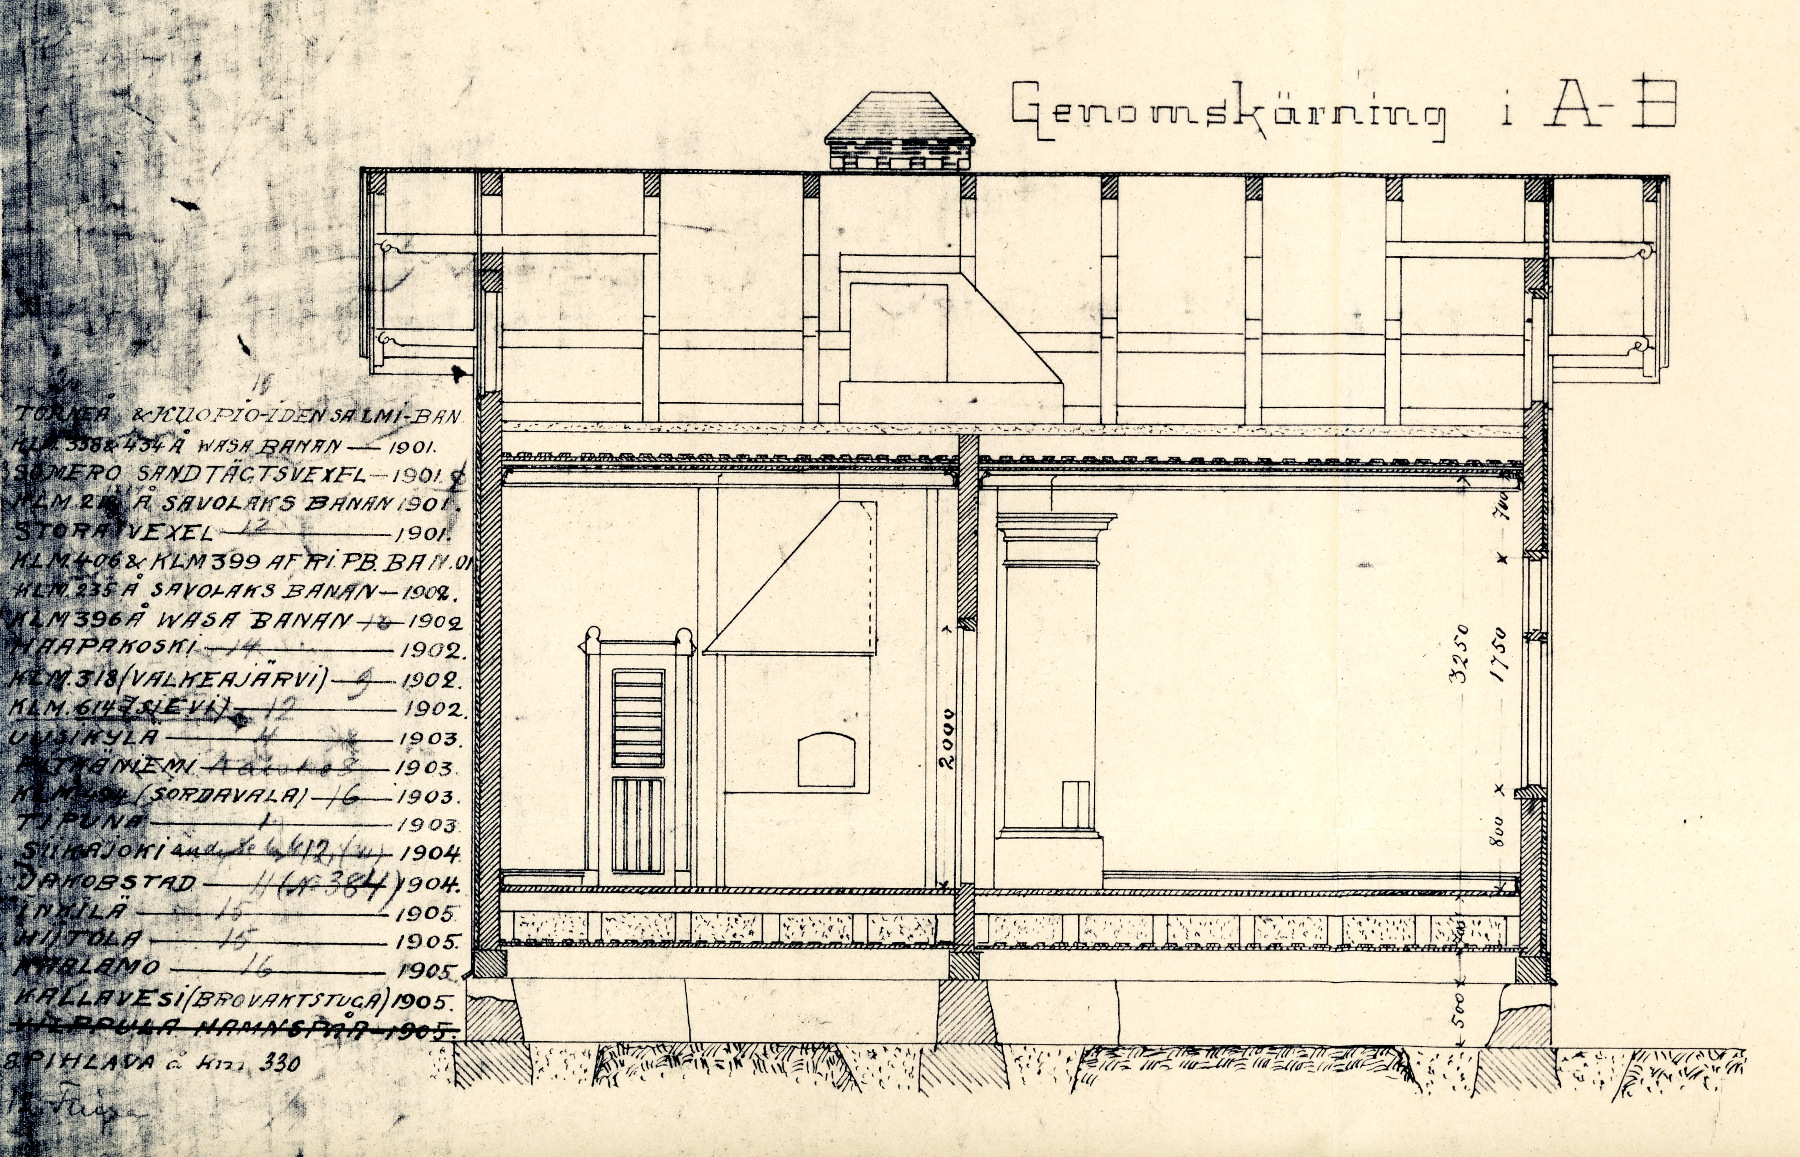 Genomskärning i A-B
TORNEÅ & KUOPIO-IDENSALMI-BAN
KLM. 338 & 434 Å WASA BANAN — 1901.
SOMERO SANDTÄGTSVEXEL — 1901.
KLM. Å SAVOLAKS BANAN 1901.
STORA VEXEL — 12 — 1901.
KLM. 406 & KLM 399 AF RI. PB. BAN. 01
KLM. 235 Å SAVOLAKS BANAN — 1902.
KLM 396 Å WASA BANAN — 1902
HAAPAKOSKI — 14 — 1902.
KLM. 318 (VALKEAJÄRVI) — 9 — 1902.
KLM. 614 (SIEVI) — 12 — 1902.
UUSIKYLÄ — 1903.
PITKÄNIEMI — 1903.
KLM. (SORDAVALA) — 16 — 1903.
TIPUNA — 1 — 1903.
SIIKAJOKI 12, — 1904
JAKOBSTAD — 11 (No 384) 1904.
INKILÄ — 15 — 1905.
HIITOLA — 15 — 1905.
KAALAMO — 16 — 1905.
KALLAVESI (BROVAKTSTUGA) 1905.
VILPPULA HAMNSPÅR — 1905.
PIHLAVA å km 330
2000
3250
700
1750
800
500